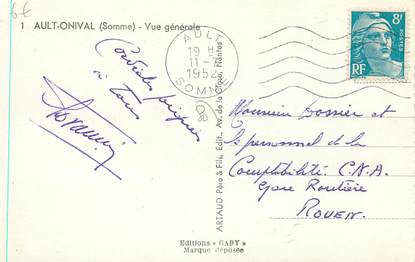 6€
1 AULT-ONIVAL (Somme) - Vue générale
AULT
19 H
11-7
1952
SOMME
8F
POSTES
RF
Cordiales
à tous
ARTAUD Père & Fils, Édit., Av. de la Close, Nantes
Monsieur Dossier et
le personnel de la
Comptabilité C.N.A.
Gare Routière
ROUEN.
Editions "GABY"
Marque déposée